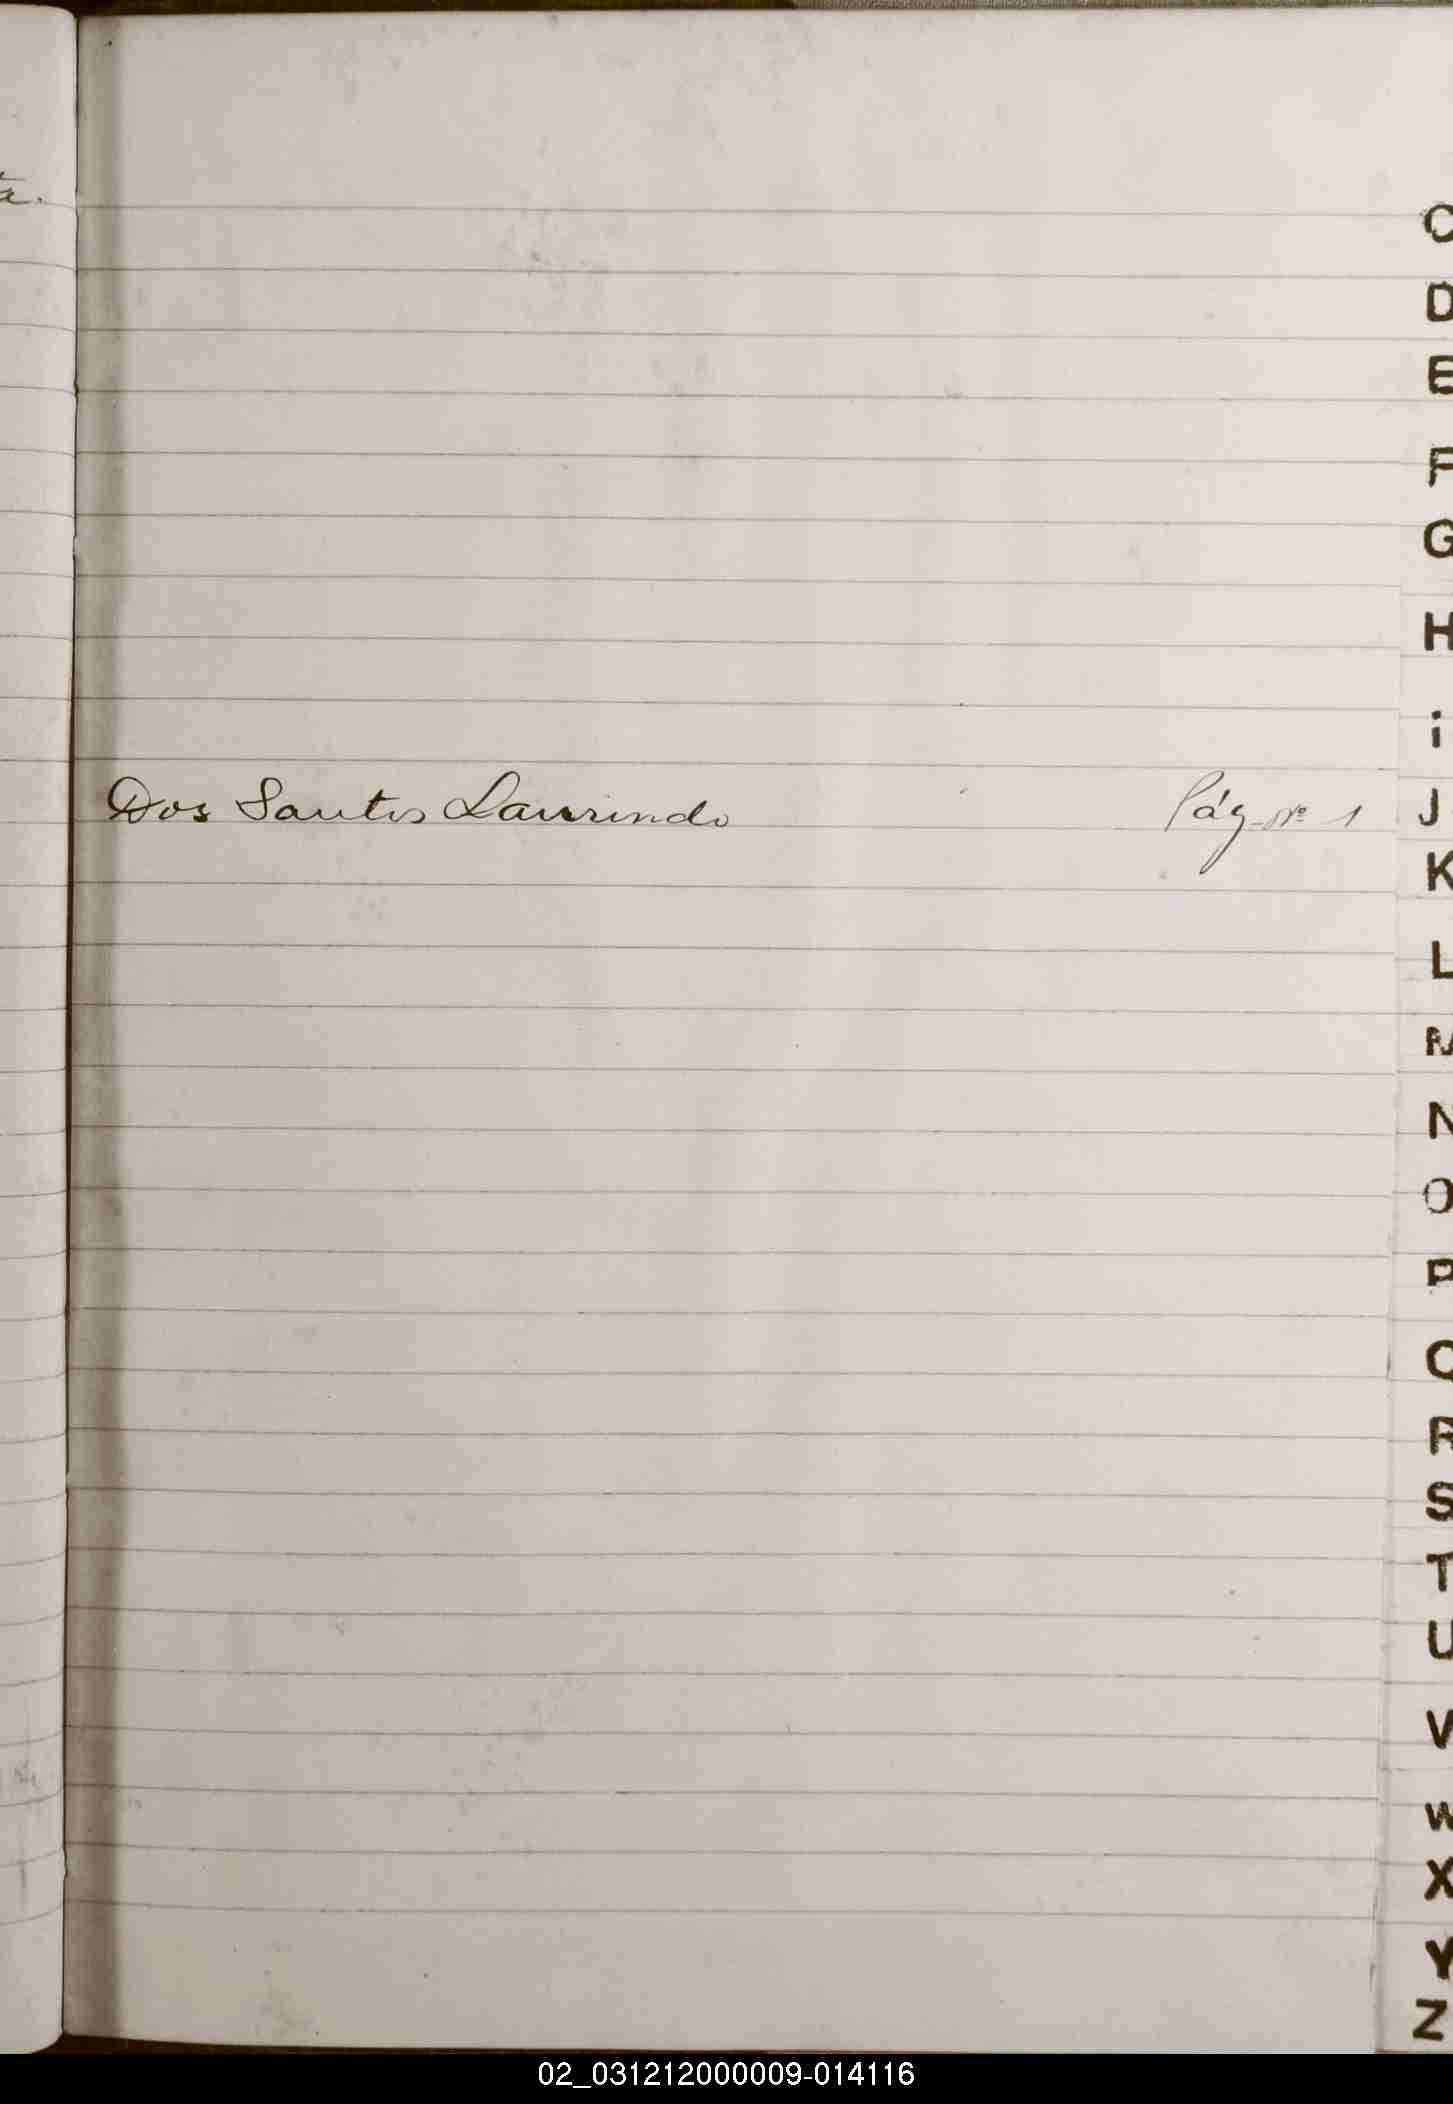 ta.
C
D
E
F
G
H
i
Dos Santos Laurindo Pág. Nº 1
J
K
L
M
N
O
P
Q
R
S
T
U
V
W
X
Y
Z
02_031212000009-014116